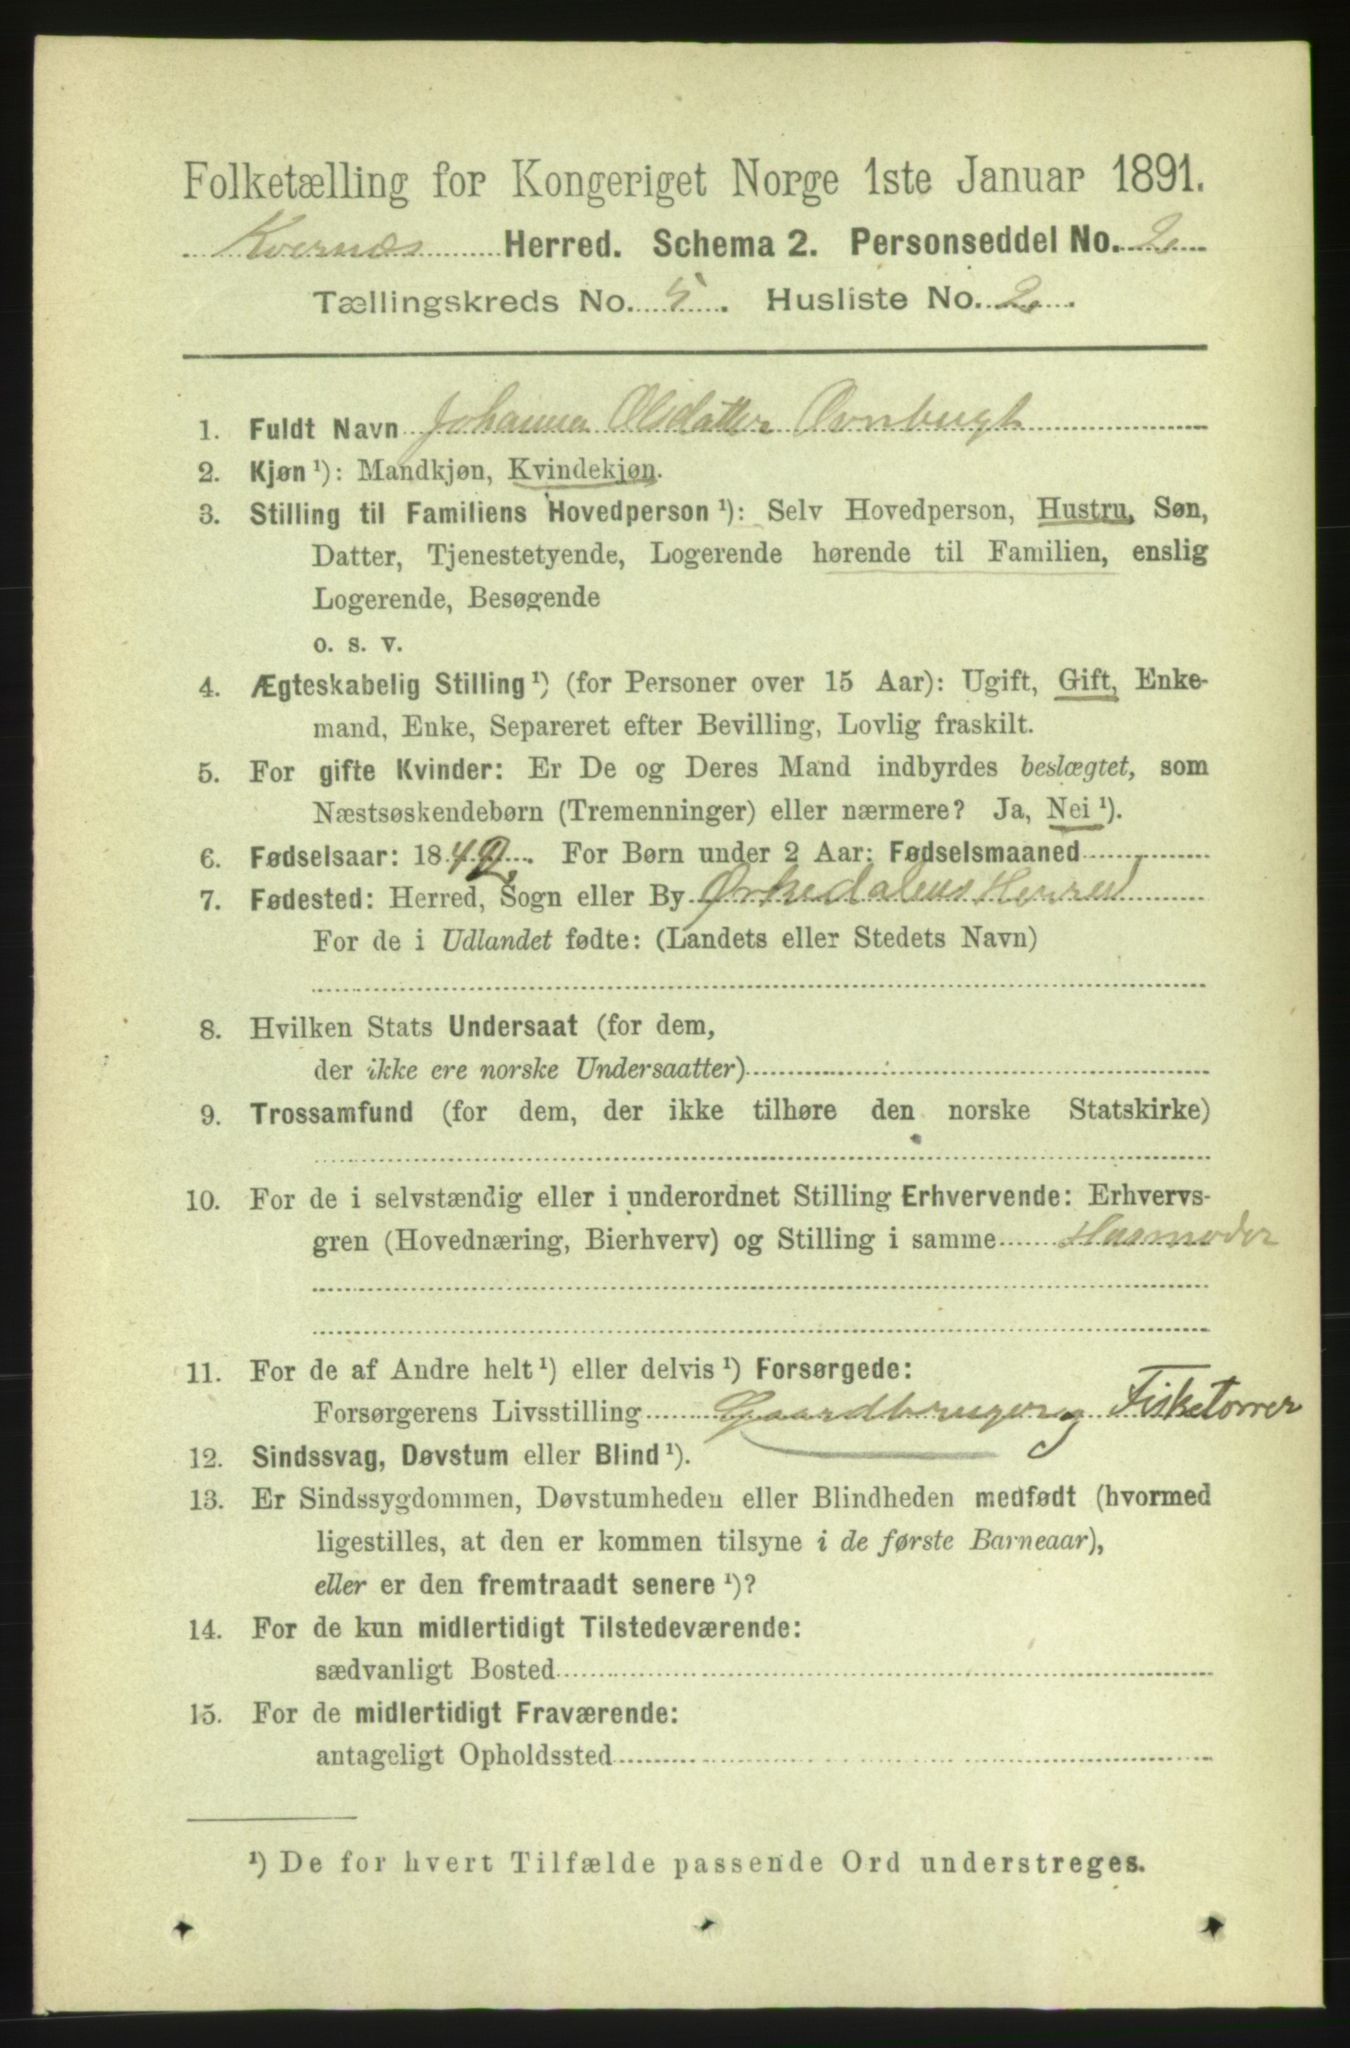 Folketælling for Kongeriget Norge 1ste Januar 1891.
Kvernæs Herred. Schema 2. Personseddel No. 2
Tællingskreds No. 5. Husliste No. 2.
1. Fuldt Navn Johanna Olsdatter
2. Kjøn¹): Mandkjøn, Kvindekjøn.
3. Stilling til Familiens Hovedperson¹): Selv Hovedperson, Hustru, Søn,
Datter, Tjenestetyende, Logerende hørende til Familien, enslig
Logerende, Besøgende
o. s. v.
4. Ægteskabelig Stilling¹) (for Personer over 15 Aar): Ugift, Gift, Enke-
mand, Enke, Separeret efter Bevilling, Lovlig fraskilt.
5. For gifte Kvinder: Er De og Deres Mand indbyrdes beslægtet, som
Næstsøskendebørn (Tremenninger) eller nærmere? Ja, Nei¹).
6. Fødselsaar: 1842. For Børn under 2 Aar: Fødselsmaaned
7. Fødested: Herred, Sogn eller By Ørkedalens Herred
For de i Udlandet fødte: (Landets eller Stedets Navn)
8. Hvilken Stats Undersaat (for dem,
der ikke ere norske Undersaatter)
9. Trossamfund (for dem, der ikke tilhøre den norske Statskirke)
10. For de i selvstændig eller i underordnet Stilling Erhvervende: Erhvervs-
gren (Hovednæring, Bierhverv) og Stilling i samme Husmoder
11. For de af Andre helt¹) eller delvis¹) Forsørgede:
Forsørgerens Livsstilling Gaardbruger og Fisketorrer
12. Sindssvag, Døvstum eller Blind¹).
13. Er Sindssygdommen, Døvstumheden eller Blindheden medfødt (hvormed
ligestilles, at den er kommen tilsyne i de første Barneaar),
eller er den fremtraadt senere¹)?
14. For de kun midlertidigt Tilstedeværende:
sædvanligt Bosted
15. For de midlertidigt Fraværende:
antageligt Opholdssted
¹) De for hvert Tilfælde passende Ord understreges.